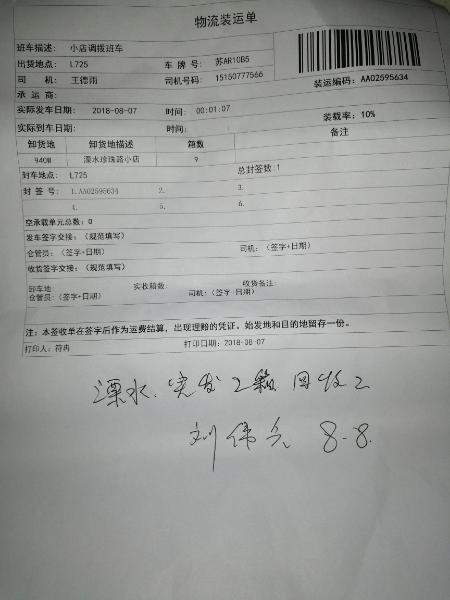 物流装运单
班车描述: 小店调拨班车
出货地点: L725 车牌号: 苏AR10B5
司机: 王德雨 司机号码: 15150777566 装运编码: AA02595634
承运商:
实际发车日期: 2018-08-07 时间: 00:01:07 装载率: 10%
实际到车日期: 时间: 备注
卸货地 卸货地描述 箱数
940W 溧水珍珠路小店 9
封车地点: L725 总封签数:1
封签号: 1.AA02595634 2. 3.
4. 5. 6.
空承载单元总数: 0
发车签字交接: (规范填写)
仓管员: (签字+日期) 司机: (签字+日期)
收货签字交接: (规范填写)
卸车地: 实收箱数: 收货备注:
仓管员: (签字+日期) 司机: (签字+日期)
注: 本签收单在签字后作为运费结算, 出现理赔的凭证。始发地和目的地留存一份。
打印人: 符冉 打印日期: 2018-08-07
溧水. 实发2箱 回收2
刘伟 8-8.